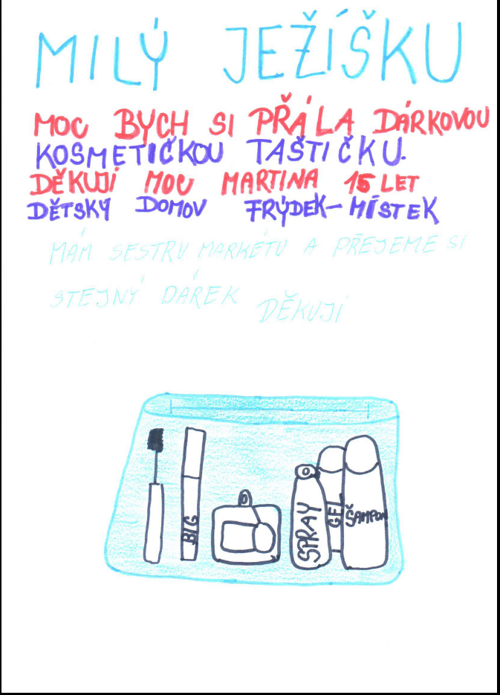 MILÝ JEŽÍŠKU
MOC BYCH SI PŘÁLA DÁRKOVOU
KOSMETIČKOU TAŠTIČKU.
DĚKUJI MOC MARTINA 15 LET
DĚTSKÝ DOMOV FRÝDEK-MÍSTEK
MÁM SESTRU MARKÉTU A PŘEJEME SI
STEJNÝ DÁREK DĚKUJI
BIG
SPRAY
GEL
ŠAMPON